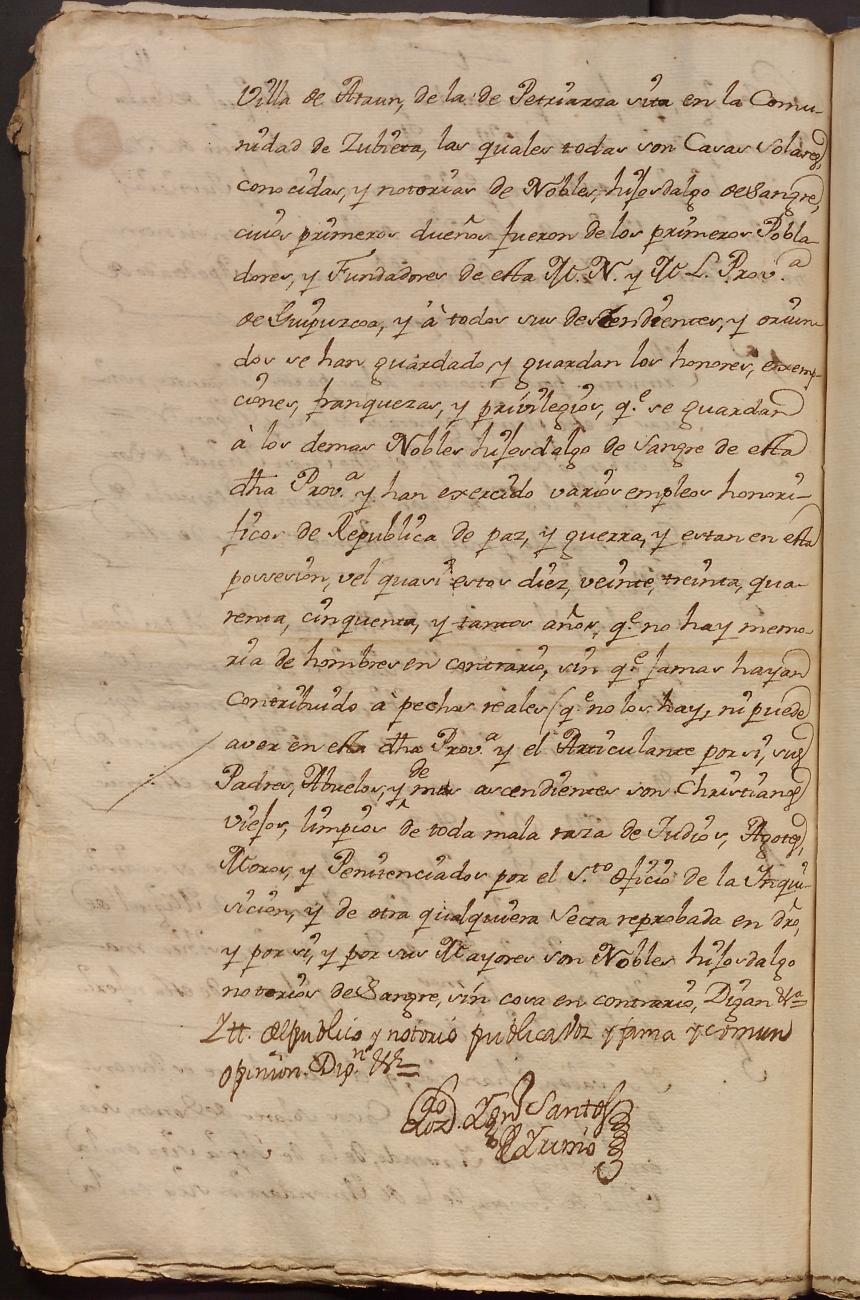 Villa de Ataun, de la de Petriarza sita en la Comu-
nidad de Zubieta, las quales todas son Casas Solares,
conocidas, y notorias de Nobles, hijosdalgo de Sangre,
cuios primeros dueños fueron de los primeros Pobla-
dores, y Fundadores de esta M. N. y M. L. Prov.ª
de Guipuzcoa, y à todos sus descendientes, y oriun-
dos se han guardado, y guardan los honores, exemp-
ciones, franquezas, y privilegios, q.e se guardan
à los demas Nobles hijosdalgo de Sangre de esta
dha Prov.ª y han exercido varios empleos honori-
ficos de Republica de paz, y guerra, y estan en esta
possesion, vel quasi estos diez, veinte, treinta, qua-
renta, cinquenta, y tantos años, q.e no hay memo-
ria de hombres en contrario, sin q.e jamas hayan
contribuido à pechas reales (q.e no los hay, ni puede
aver en esta dha Prov.ª y el Articulante por si, sus
Padres, Abuelos, y de mas ascendientes son Christianos
viejos, limpios de toda mala raza de Judios, Agotes,
Moros, y Penitenciados por el S.to Oficio de la Inqui-
sicion, y de otra qualquiera Secta reprobada en dro,
y por si, y por sus Mayores son Nobles hijosdalgo
notorios de Sangre, sin cosa en contrario, Digan &ª=
Ytt. de publico y notorio publica voz y fama y comun
opinion. Dig.n &ª=
Santos